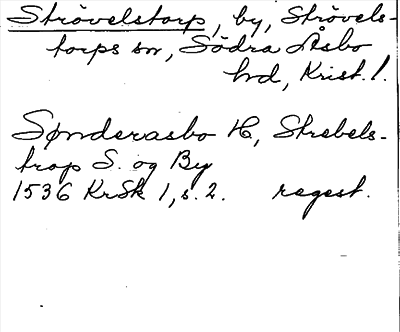 Strövelstorp, by, Strövels-
torps sn, Södra Åsbo
hd, Krist. l.
Sønderasbo H, Strebels-
trop S. og By
1536 KrSk 1, s. 2. regest.